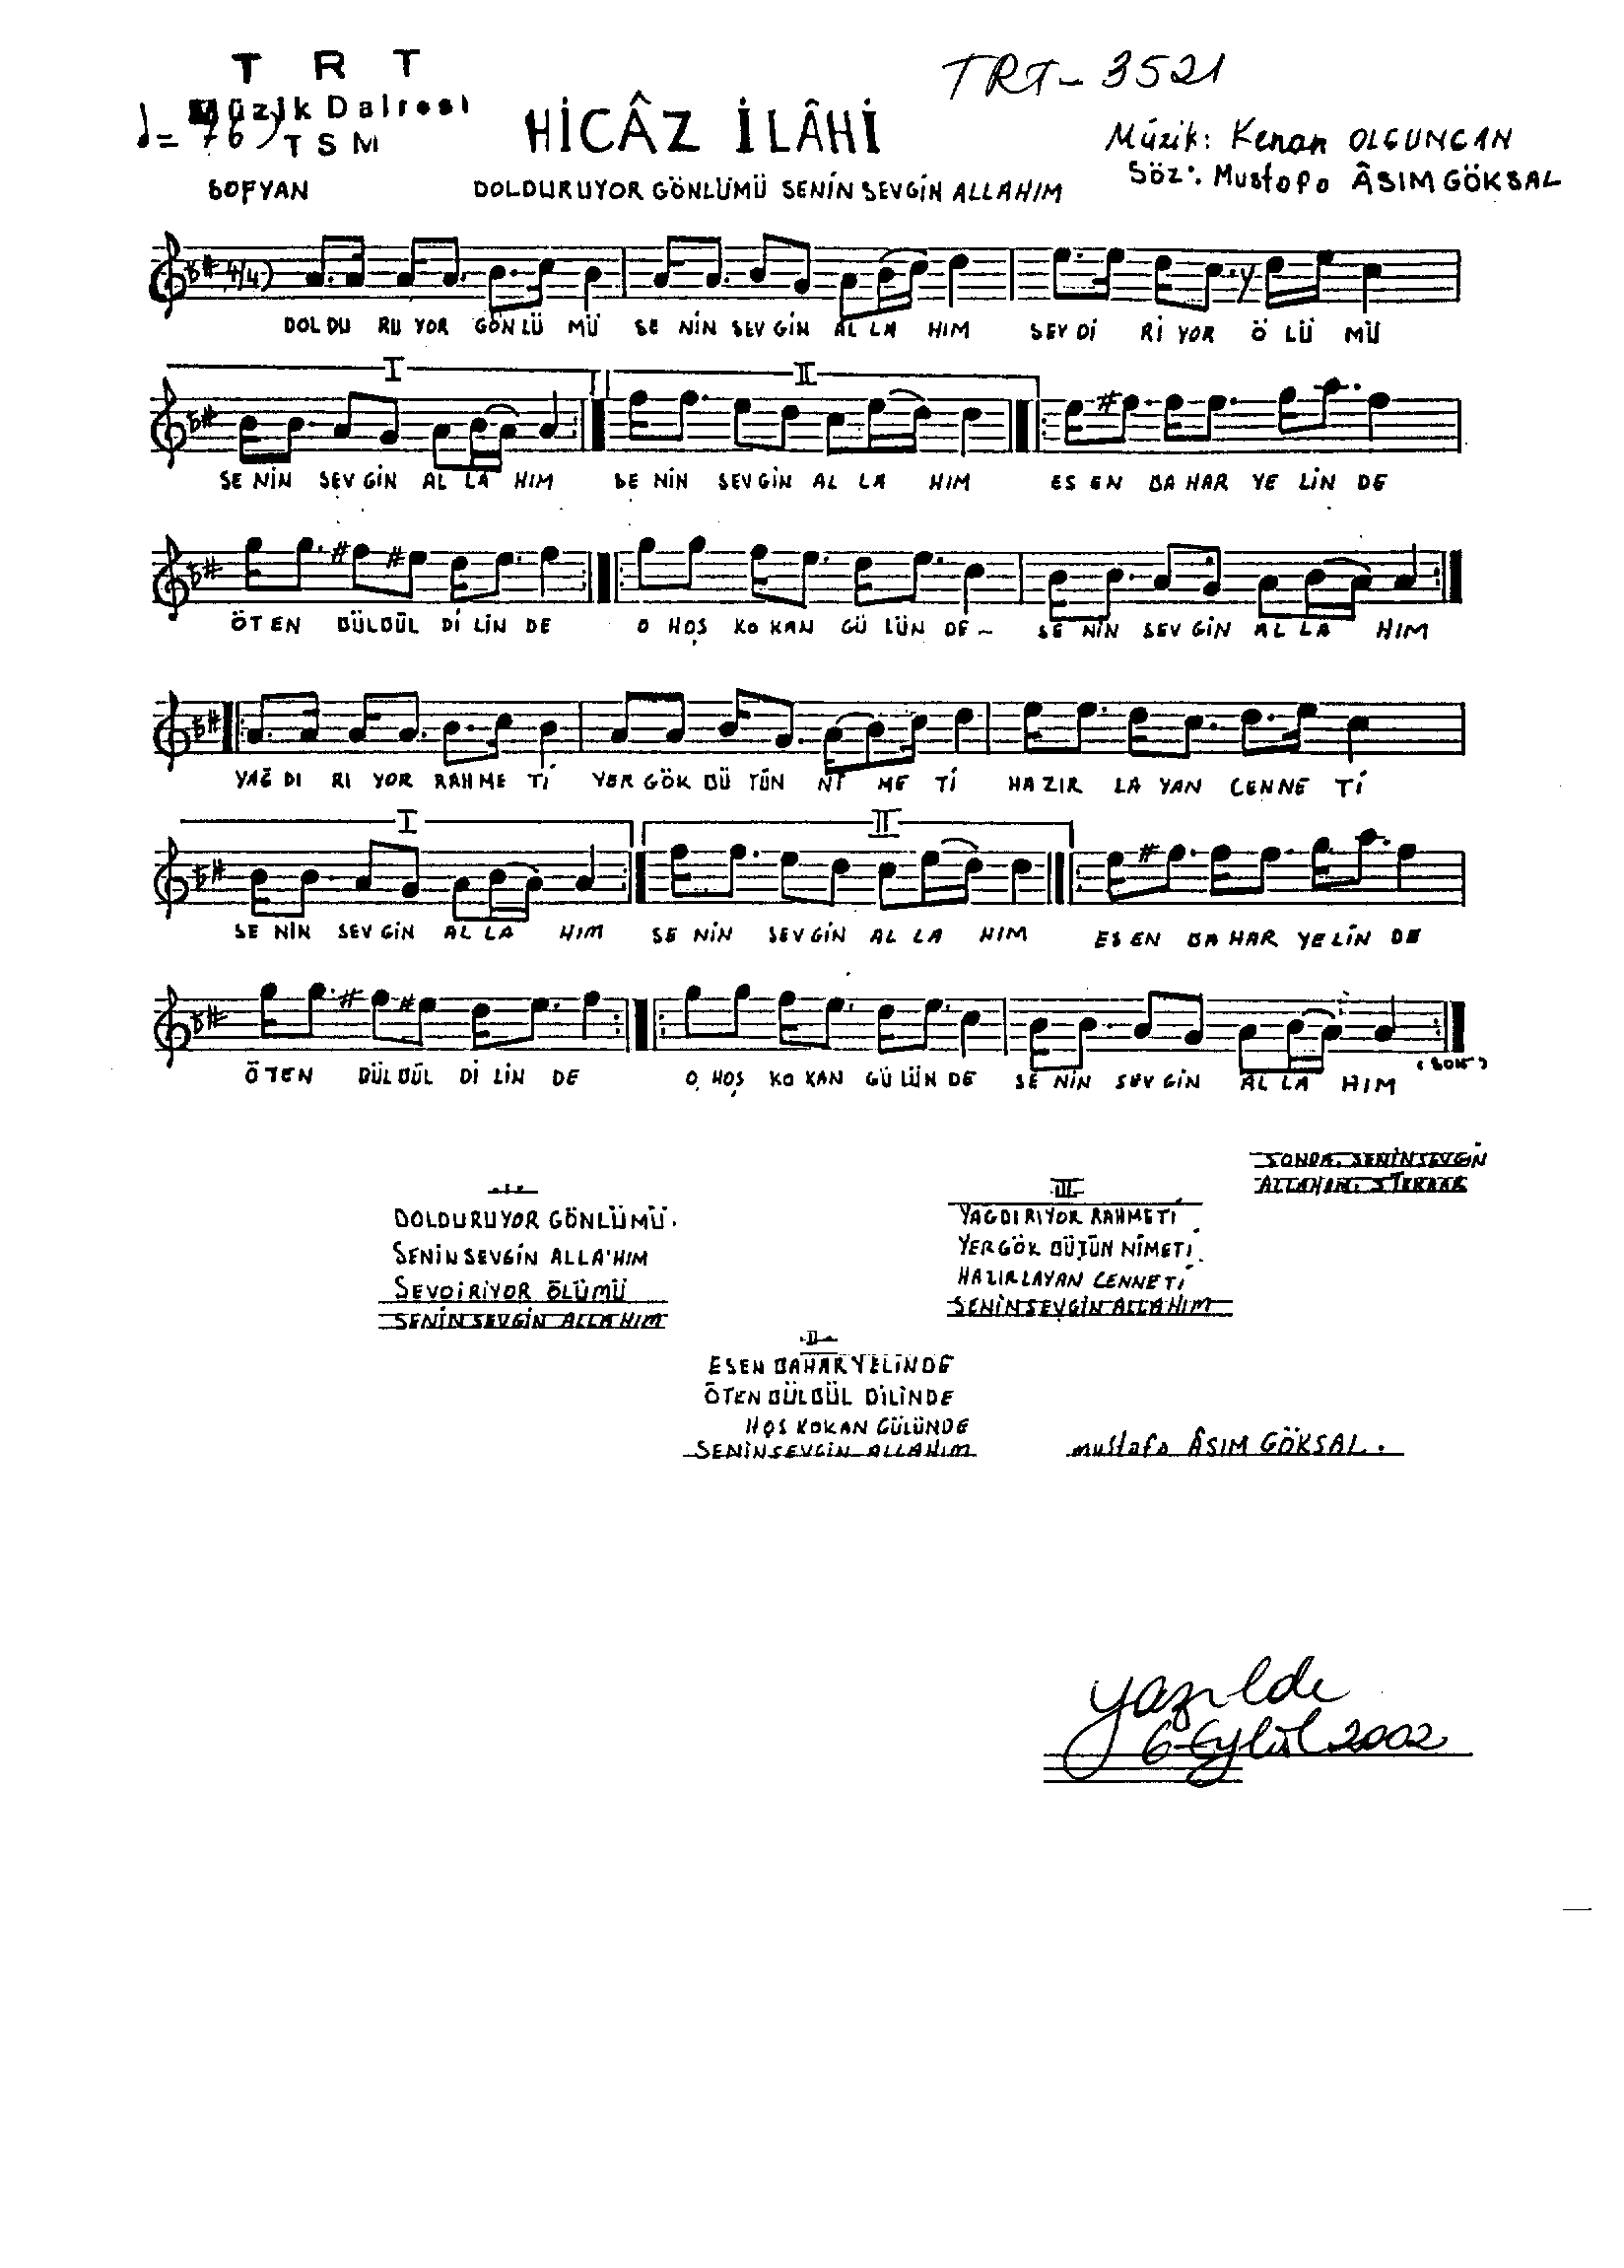 T R T
Müzik Dairesi
♩= 76 TSM
TRT- 3521
HİCÂZ İLÂHİ
Müzik: Kenan OLGUNCAN
SOFYAN
DOLDURUYOR GÖNLÜMÜ SENİN SEVGİN ALLAHIM
Söz: Mustafa ÂSIM GÖKSAL
(4/4)
DOL DU RU YOR GÖN LÜ MÜ SE NİN SEV GİN AL LA HIM SEV Dİ Rİ YOR Ö LÜ MÜ
I II
SE NİN SEV GİN AL LA HIM SE NİN SEV GİN AL LA HIM ES EN BA HAR YE LİN DE
ÖT EN BÜL BÜL Dİ LİN DE O HOŞ KO KAN GÜ LÜN DE~ SE NİN SEV GİN AL LA HIM
YAĞ DI RI YOR RAH ME Tİ YER GÖK BÜ TÜN Nİ ME Tİ HA ZIR LA YAN CENNE Tİ
I II
SE NİN SEV GİN AL LA HIM SE NİN SEV GİN AL LA HIM ES EN BA HAR YE LİN DE
ÖTEN BÜL BÜL Dİ LİN DE O HOŞ KO KAN GÜ LÜN DE SE NİN SEV GİN AL LA HIM
(SON)
SONDA. SENİN SEVGİN
-I-
DOLDURUYOR GÖNLÜMÜ.
SENİN SEVGİN ALLA'HIM
SEVDİRİYOR ÖLÜMÜ
SENİN SEVGİN ALLAHIM
III
YAĞDIRIYOR RAHMETİ
YERGÖK BÜTÜN NİMETİ
HAZIRLAYAN CENNETİ
SENİN SEVGİN ALLAHIM
-II-
ESEN BAHAR YELİNDE
ÖTEN BÜLBÜL DİLİNDE
HOŞ KOKAN GÜLÜNDE
SENİN SEVGİN ALLAHIM
Mustafa ÂSIM GÖKSAL.
Yazıldı
6 Eylül 2002